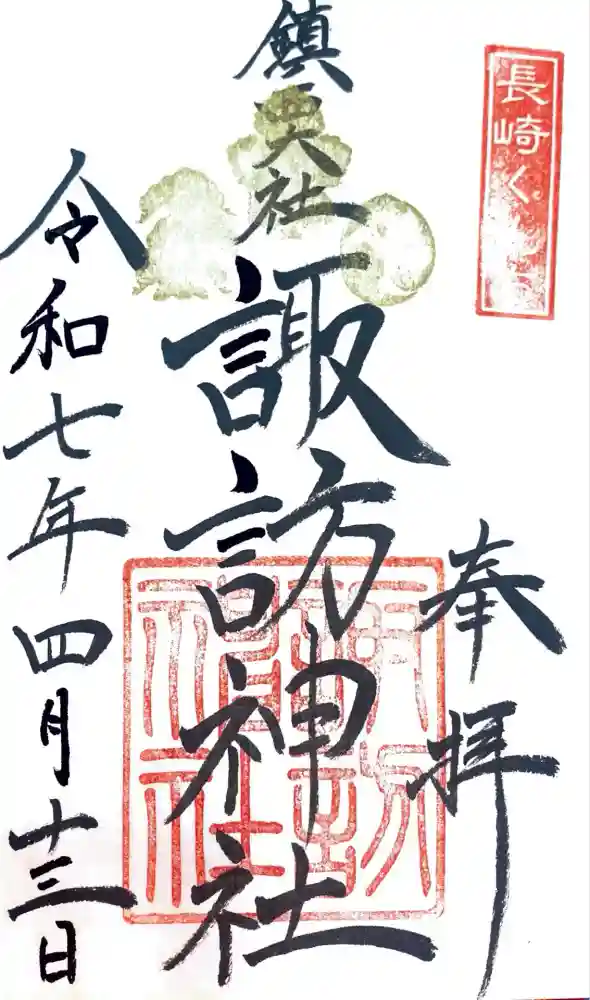 長崎く
奉拝
鎮西大社
諏訪神社
令和七年四月十三日